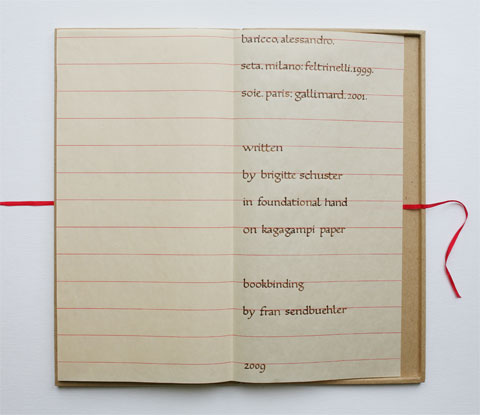 baricco, alessandro.
seta. milano: feltrinelli. 1999.
soie. paris: gallimard. 2001.
written
by brigitte schuster
in foundational hand
on kagagampi paper
bookbinding
by fran sendbuehler
2009